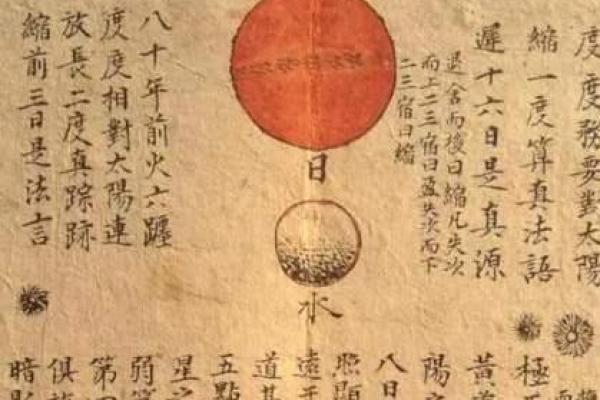 度度務要對太陽
縮一度算真法語
遲十六日是真源
退舍而複曰縮凡失次
而上二三宿曰盈失次而下
二三宿曰縮
日
水
八十年前火六躔
度度相對太陽連
放長二度真踪跡
縮前三日是法言
極
黃
陽
八日
照顯
遠
道
五點
星
弱算
第
俱
暗